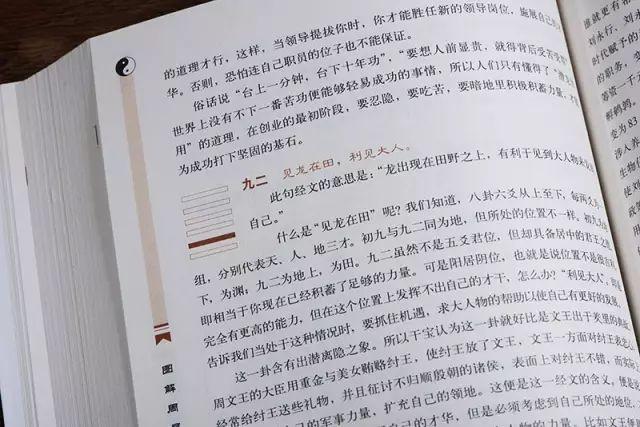 的道理才行，这样，当领导提拔你时，你才能胜任新的领导岗位，施展自己的
华。否则，恐怕连自己职员的位子也不能保证。
俗话说“台上一分钟，台下十年功”，“要想人前显贵，就得背后受苦受
世界上没有不下一番苦功便能够轻易成功的事情，所以人们只有懂得了“潜龙
用”的道理，在创业的最初阶段，要忍隐，要吃苦，要暗地里积极积蓄力量，才
为成功打下坚固的基石。
九二 见龙在田，利见大人。
此句经文的意思是：“龙出现在田野之上，有利于见到大人物来
自己。”
什么是“见龙在田”呢？我们知道，八卦六爻从上至下，每两爻
组，分别代表天、人、地三才。初九与九二同为地，但所处的位置不一样。初九
下，为渊，九二为地上，为田。九二虽然不是五爻君位，但却具备居中的君王之
即相当于你现在已经积蓄了足够的力量。可是阳居阴位，也就是说位置不是很
完全有更高的能力，但在这个位置上发挥不出自己的才干，怎么办？“利见大人”，即
告诉我们当处于这种情况时，要抓住机遇，求大人物的帮助以使自己有更好的发展。
这一卦含有出潜离隐之象。所以干宝认为这一卦就好比是文王出于羑里的
周文王的大臣用重金与美女贿赂纣王，使纣王放了文王，文王一方面对纣王
经常给纣王送些礼物，并且征讨不归顺殷朝的诸侯，表面上对纣王不错，而实际
己的军事力量，扩充自己的领地。这便是这一经文的含义，便是
己的才华，但是必须考虑到自己所处的地位
比如文王便
图解周
谁就更有
刘永行、刘永
时代赋予的
的职务，变
等凑一千
鹌鹑。
变为 83
涉人养
生物
使刘